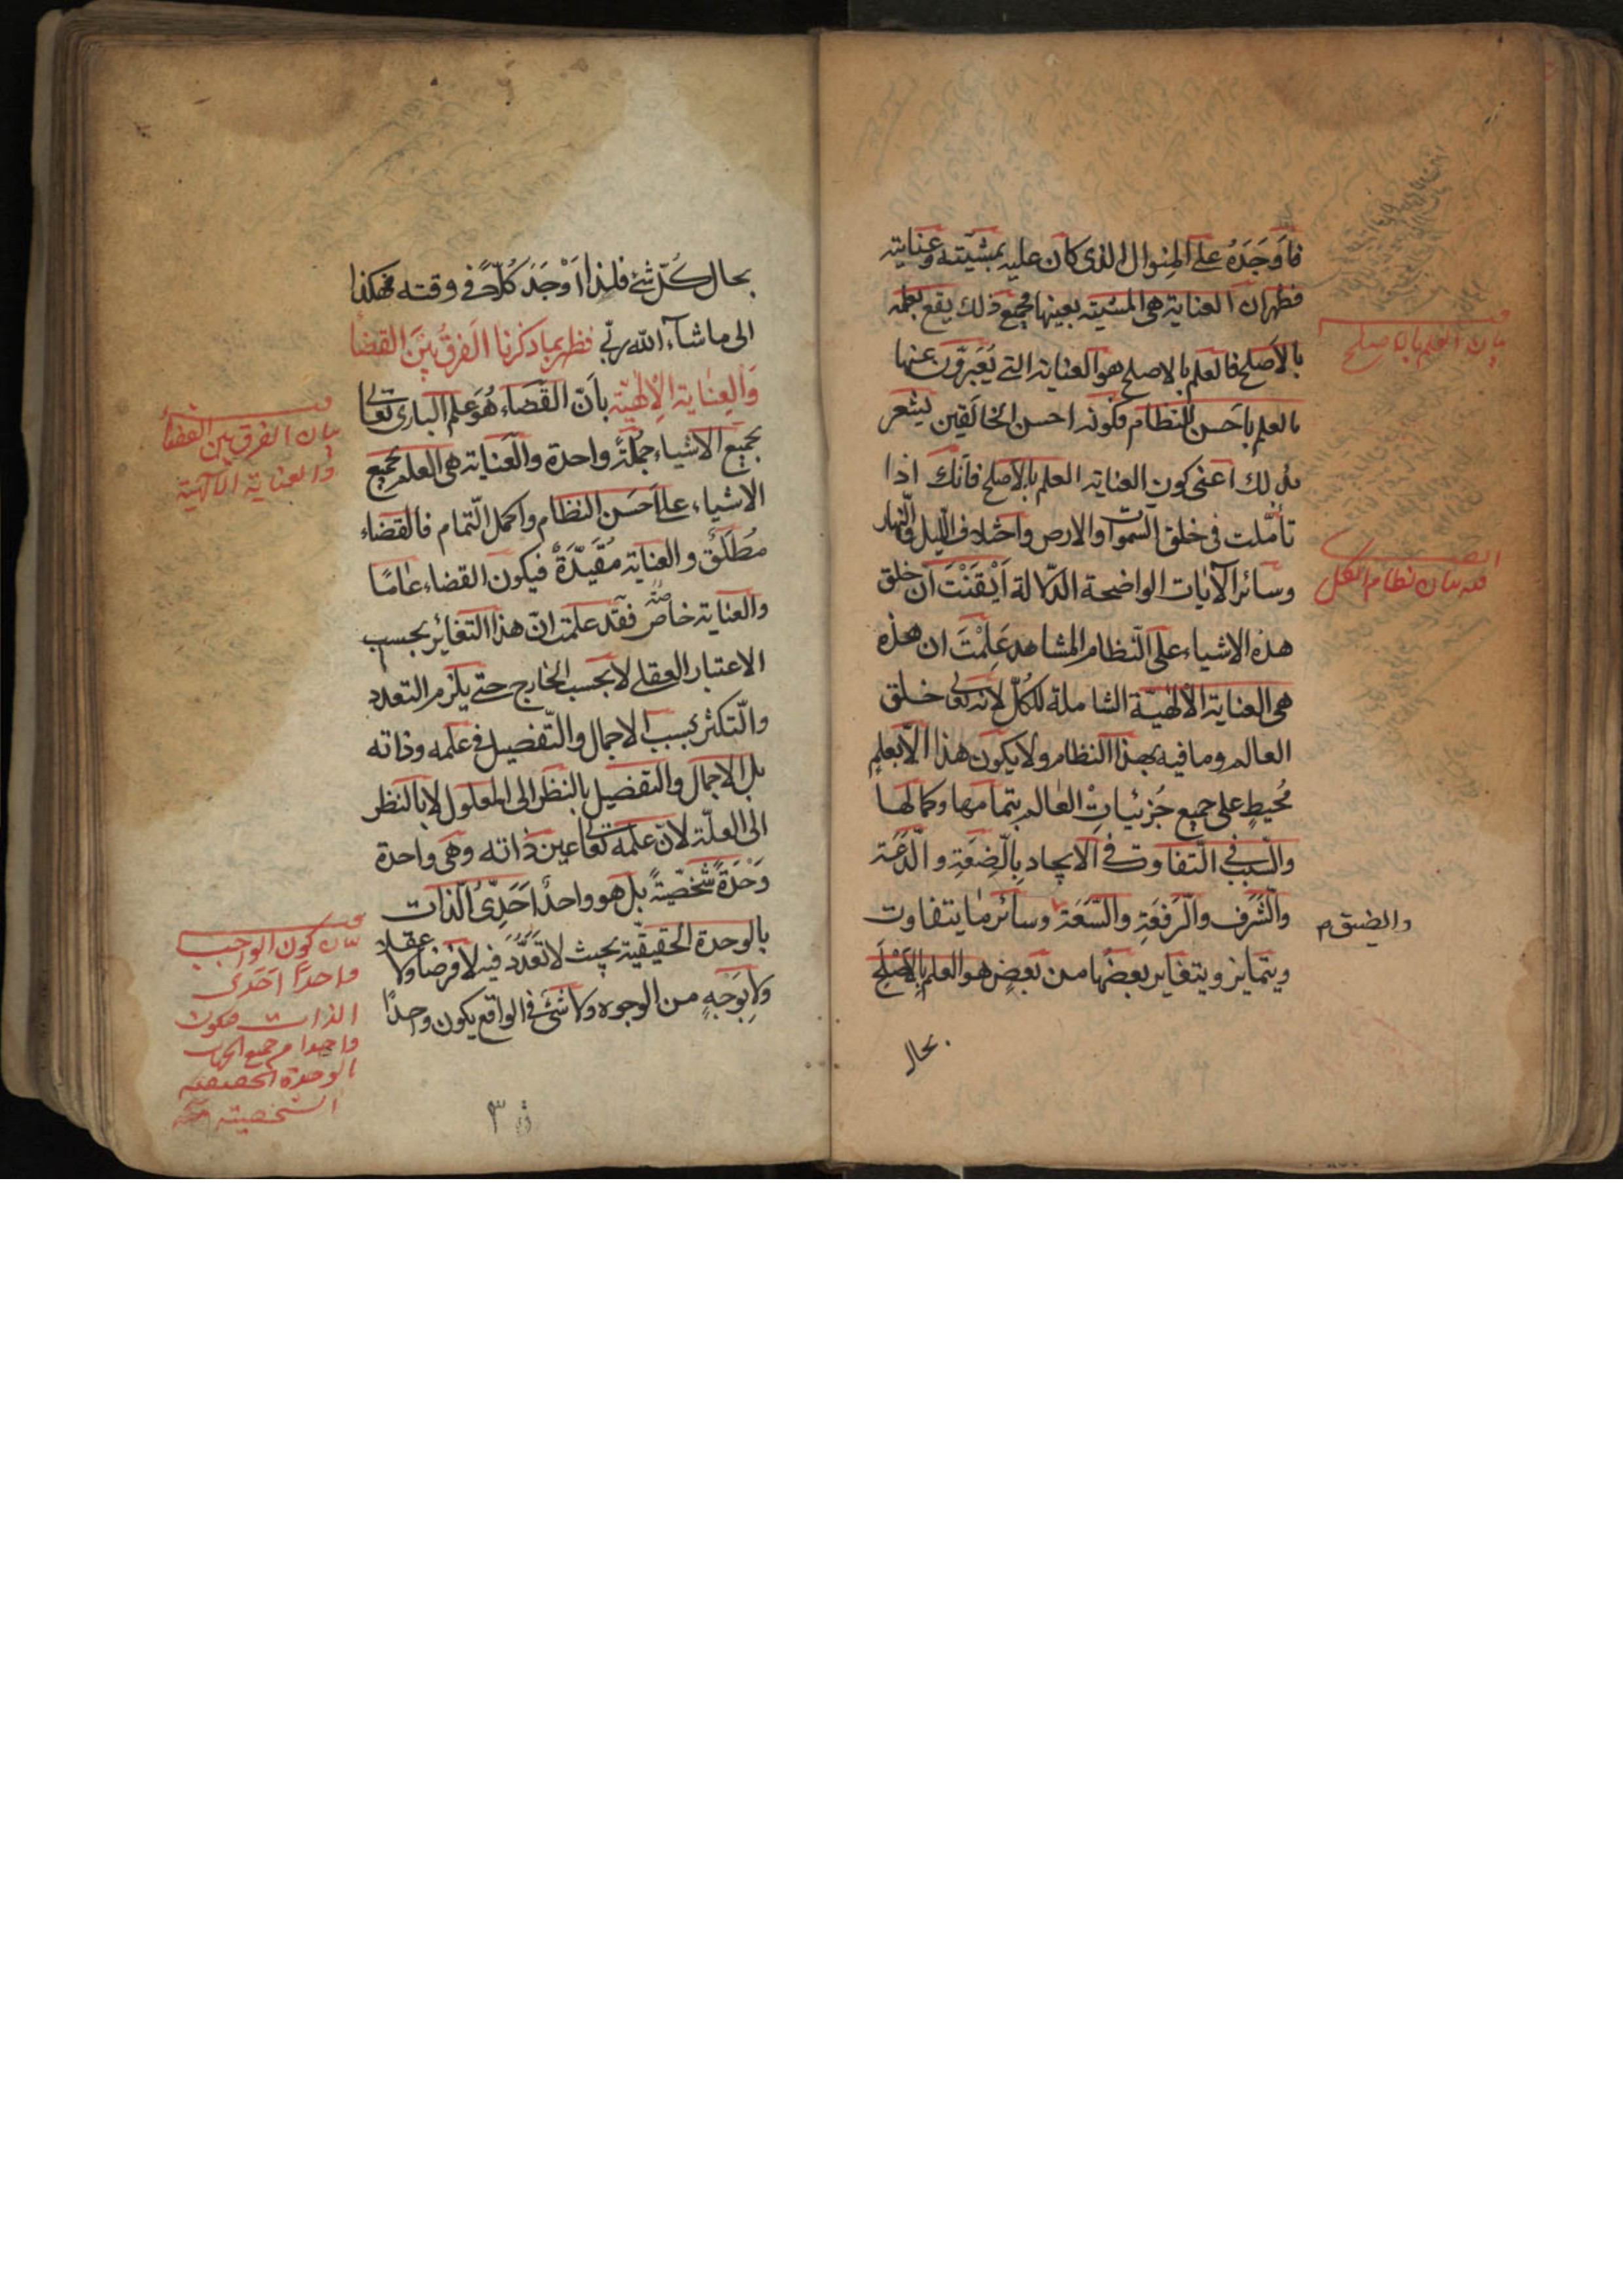 فاَوجَدَهُ على المِنوال الذى كان عليه بمشيّته وعنايته
فظهر ان العناية هى المشيّته بعينها فجميع ذلك يقع بعلمه
بالاَصلح فالعلم بالاصلح هو العناية التى يُعَبّرون عنها
بالعلم باَحسن النظام فكونه احسن الخالقين يُشعر
بذلك اعنى كون العناية العلم بالاَصلح فانّك اذا
تأمّلت فى خلق السّموات والارض واختلاف اللّيل والنّهار
وسائر الآيات الواضحة الدّلالة اَيْقَنْتَ اَنّ خلق
هذه الاشياء على النّظام المشاهد عَلِمْتَ ان هذه
هى العناية الالهيّة الشاملة للكُلّ لانّه تعالى خلق
العالم وما فيه بهذا النظام ولا يكون هذا الّا بعلمٍ
مُحيطٍ على جميع جُزئيات العالم بتمامها وكمالها
والسّبب فى التّفاوت فى الايجاد بالضِعَةِ والدّعَة
والشّرَف والرّفعَةِ والسّعَة وسائر ما يتفاوت
ويتمايز ويتغاير بعضُها من بعضٍ هو العلم بالاَصْلَح
بحال
بيان العلم بالاصلح
فيه بيان نظام الكل
والضيق م
بحال كُلّ شئ فلذا اَوْجَدَ كُلاًّ فى وقته فهكذا
الى ما شاء الله ربّى فظهر بما ذكرنا الفرقُ بَيْنَ القضاء
وَالعِناية الاِلٰهيّة بانّ القضاء هُوَ علم البارى تعالى
بجميع الاشياء جملةً واحدة والعناية هى العلم بجميع
الاشياء على اَحسَن النظام واكمل التّمام فالقضاء
مُطلَقٌ والعناية مُقَيّدَةٌ فيكون القضاء عامًا
والعناية خاصّة فقد علمتَ انّ هذا التغائر بحسب
الاعتبار العقلى لا بحسب الخارج حتى يلزم التعدد
والتّكثر بسبب الاجمال والتّفصيل فى علمه وذاته
بل الاجمال والتفصيل بالنظر الى المعلول لا بالنظر
الى العلّة لانّ علمه تعالى عين ذاته وهى واحدة
وَحْدَةً شخصّيةً بل هو واحدٌ اَحَدِىُّ الذات
بالوحدة الحقيقيّة بحيث لا تَعَدُّدَ فيه لا فرضا ولا عقلا
ولا بوَجْهٍ من الوجوه ولا شئ فى الواقع يكون واحدًا
بيان الفرق بين القضاء
والعناية الآلهية
بيان كون الواجب
واحداً اَحَدى
الذات فيكون
واحدا من جميع الجهات
الوحدة الحقيقيه
الشخصيته